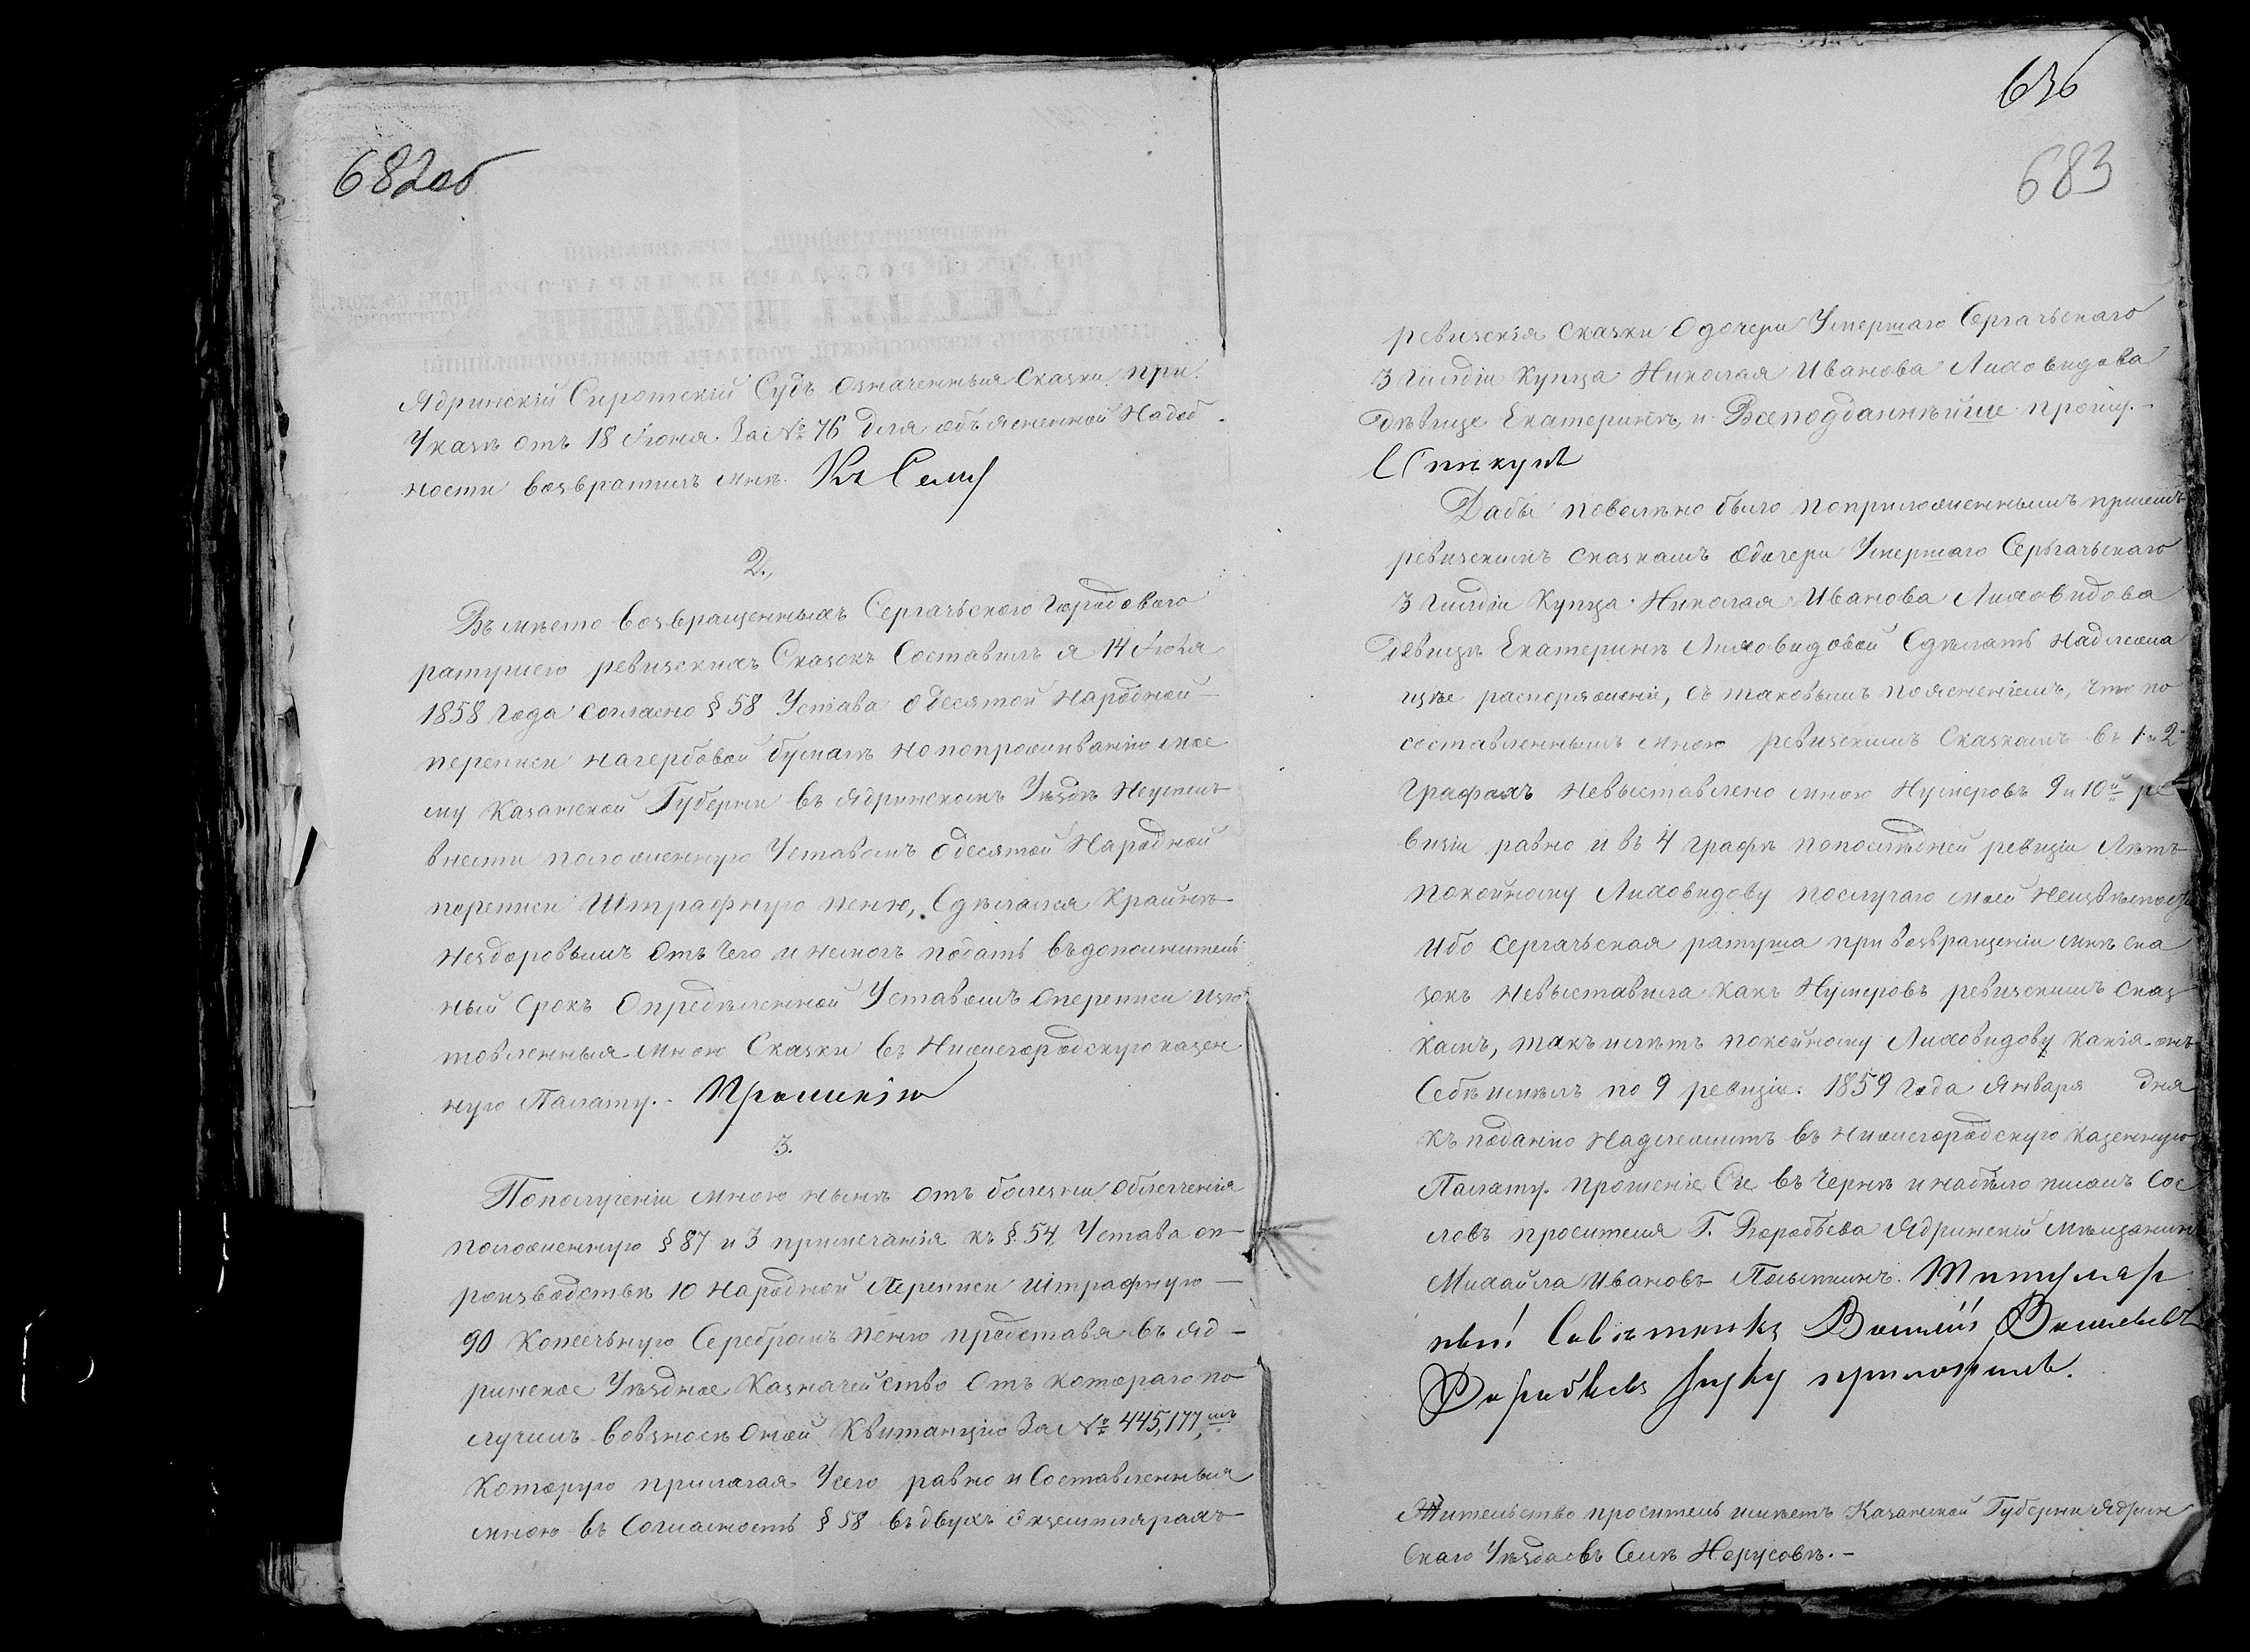 682об
Ядринскій Сиротскій Судъ означенныя Сказки при
Указѣ отъ 18 Іюня За № 76 для объясненной Надоб-
ности возвратилъ мнѣ. Къ Сему
2.,
Въ мѣсто возвращенныхъ Сергачьскою Городового
ратушею ревизскихъ Сказокъ Составилъ я 14 Іюля
1858 Года согласно § 58 Устава о десятой Народной
переписи нагербовой бумагѣ но попроживанію мое
му Казанской Губерніи въ Ядринскомъ Уѣздѣ Неуспелъ
внести положенную Уставомъ одесятой Народной
переписи Штрафную пеню, Сдѣлался Крайнѣ
нездоровымъ Отъ Чего и немогъ подать въдополнитель
ный Срокъ Опредѣленной Уставомъ Опереписи Изго
товленныя мною Сказки въ Нижегородскую казен
ную Палату.- Прошенію
3.
Пополученіи мною нынѣ отъ болезни облегченія
положенную § 87 и 3 примечанія къ § 54 Устава оп-
роизводствѣ 10 Народной Переписи Штрафную —
90 Копеечьную Серебромъ пеню представя въ Яд-
ринское Уѣздное Казначейство Отъ котораго по
лучилъ вовзносѣ оной Квитанцію За № 445,177,
Которую прилагая Усего равно и Составленныя
мною въ Согласность § 58 въдвухъ экземплярахъ
636
683
ревизскія сказки Одочери Умершаго Сергачьскаго
3 Гильдіи Купца Николая Иванова Лиховидова
Дѣвице Екатеринѣ, и Всеподданнѣйше прошу.-
Дабы повелѣно было поприложеннымъ присемъ
ревизскимъ сказкамъ одочери Умершаго Серьгачьскаго
3 Гильдіи Купца Николая Иванова Лиховидова
Девицѣ Екатеринѣ Лиховидовой Сдѣлать Надлежа
щѣе распоряженіе, съ таковымъ поясненіемъ, что по
составленнымъ мною ревизскимъ Сказкамъ въ 1 и 2
Графахъ Невыставлено мною Нумеровъ 9 и 10й ре
визіи равно и въ 4 графѣ попослѣдней ревизіи Лѣтъ
покойному Лиховидову послучаю моей Неизвѣстности
Ибо Сергачьская ратуша при возвращеніи мнѣ ска
зокъ Невыставила Какъ Нумеровъ ревизскимъ сказ
камъ, такъ илѣтъ покойному Лиховидову какія онъ
Себѣ имѣлъ по 9 ревизіи. 1859 Года Января дня
Къ поданію Надлежитъ въ Нижегородскую Казенную
Палату. Прошеніе Сіе въ Чернѣ и набѣло писалъ Сос
ловъ просителя Г. Воробьева Ядринскій Мѣщанинъ
Михайла Ивановъ Титуляр
ный Совѣтникъ Василій Васильевъ
Воробьевъ руку приложилъ.
Жительство проситель имѣетъ Казанской Губерніи Ядрин
скаго Уѣзда въ Селѣ Норусовѣ.-